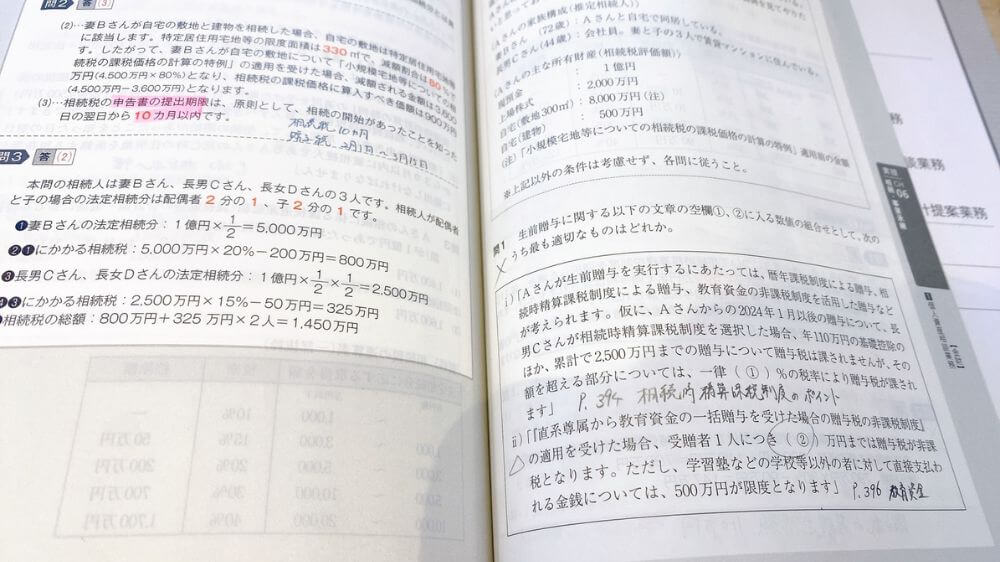 問2 答 (3)
(2)…妻Bさんが自宅の敷地と建物を相続した場合、自宅の敷地は特定居住用宅地等
に該当します。特定居住用宅地等の限度面積は330㎡で、減額割合は80%です。
したがって、妻Bさんが自宅の敷地について「小規模宅地等についての相
続税の課税価格の計算の特例」の適用を受けた場合、減額される金額は3,600
万円(4,500万円×80%)となり、相続税の課税価格に算入すべき価額は900万円
(4,500万円-3,600万円)となります。
(3)…相続税の申告書の提出期限は、原則として、相続の開始があったことを知った
日の翌日から10カ月以内です。
相続税 10ヵ月
問3 答 (2)
本問の相続人は妻Bさん、長男Cさん、長女Dさんの3人です。相続人が配偶者
と子の場合の法定相続分は配偶者2分の1、子2分の1です。
❶妻Bさんの法定相続分:1億円×1/2=5,000万円
❷❶にかかる相続税:5,000万円×20%-200万円=800万円
❸長男Cさん、長女Dさんの法定相続分:1億円×1/2×1/2=2,500万円
❹❸にかかる相続税:2,500万円×15%-50万円=325万円
相続税の総額:800万円+325万円×2人=1,450万円
Aさんの家族構成(推定相続人)〉
妻Bさん(72歳):Aさんと自宅で同居している。
長男Cさん(44歳):会社員。妻と子の3人で賃貸マンションに住んでいる。
〈Aさんの主な所有財産(相続税評価額)〉
現預金 : 1億円
上場株式 : 2,000万円
自宅(敷地300㎡):8,000万円(注)
自宅(建物) : 500万円
(注)「小規模宅地等についての相続税の課税価格の計算の特例」適用前の金額
※上記以外の条件は考慮せず、各問に従うこと。
問1 生前贈与に関する以下の文章の空欄①、②に入る数値の組合せとして、次の
うち最も適切なものはどれか。
ⅰ)「Aさんが生前贈与を実行するにあたっては、暦年課税制度による贈与、相
続時精算課税制度による贈与、教育資金の非課税制度を活用した贈与など
が考えられます。仮に、Aさんからの2024年1月以後の贈与について、長
男Cさんが相続時精算課税制度を選択した場合、年110万円の基礎控除の
ほか、累計で2,500万円までの贈与について贈与税は課されませんが、その
額を超える部分については、一律(①)%の税率により贈与税が課され
ます」 P.394 相続時精算課税制度のポイント
ⅱ)「『直系尊属から教育資金の一括贈与を受けた場合の贈与税の非課税制度』
の適用を受けた場合、受贈者1人につき(②)万円までは贈与税が非課
税となります。ただし、学習塾などの学校等以外の者に対して直接支払わ
れる金銭については、500万円が限度となります」 P.396 教育資金
実技
CH 06
相続・事業承継
1
【金財】
個人資産相談業務
談業務
計提案業務